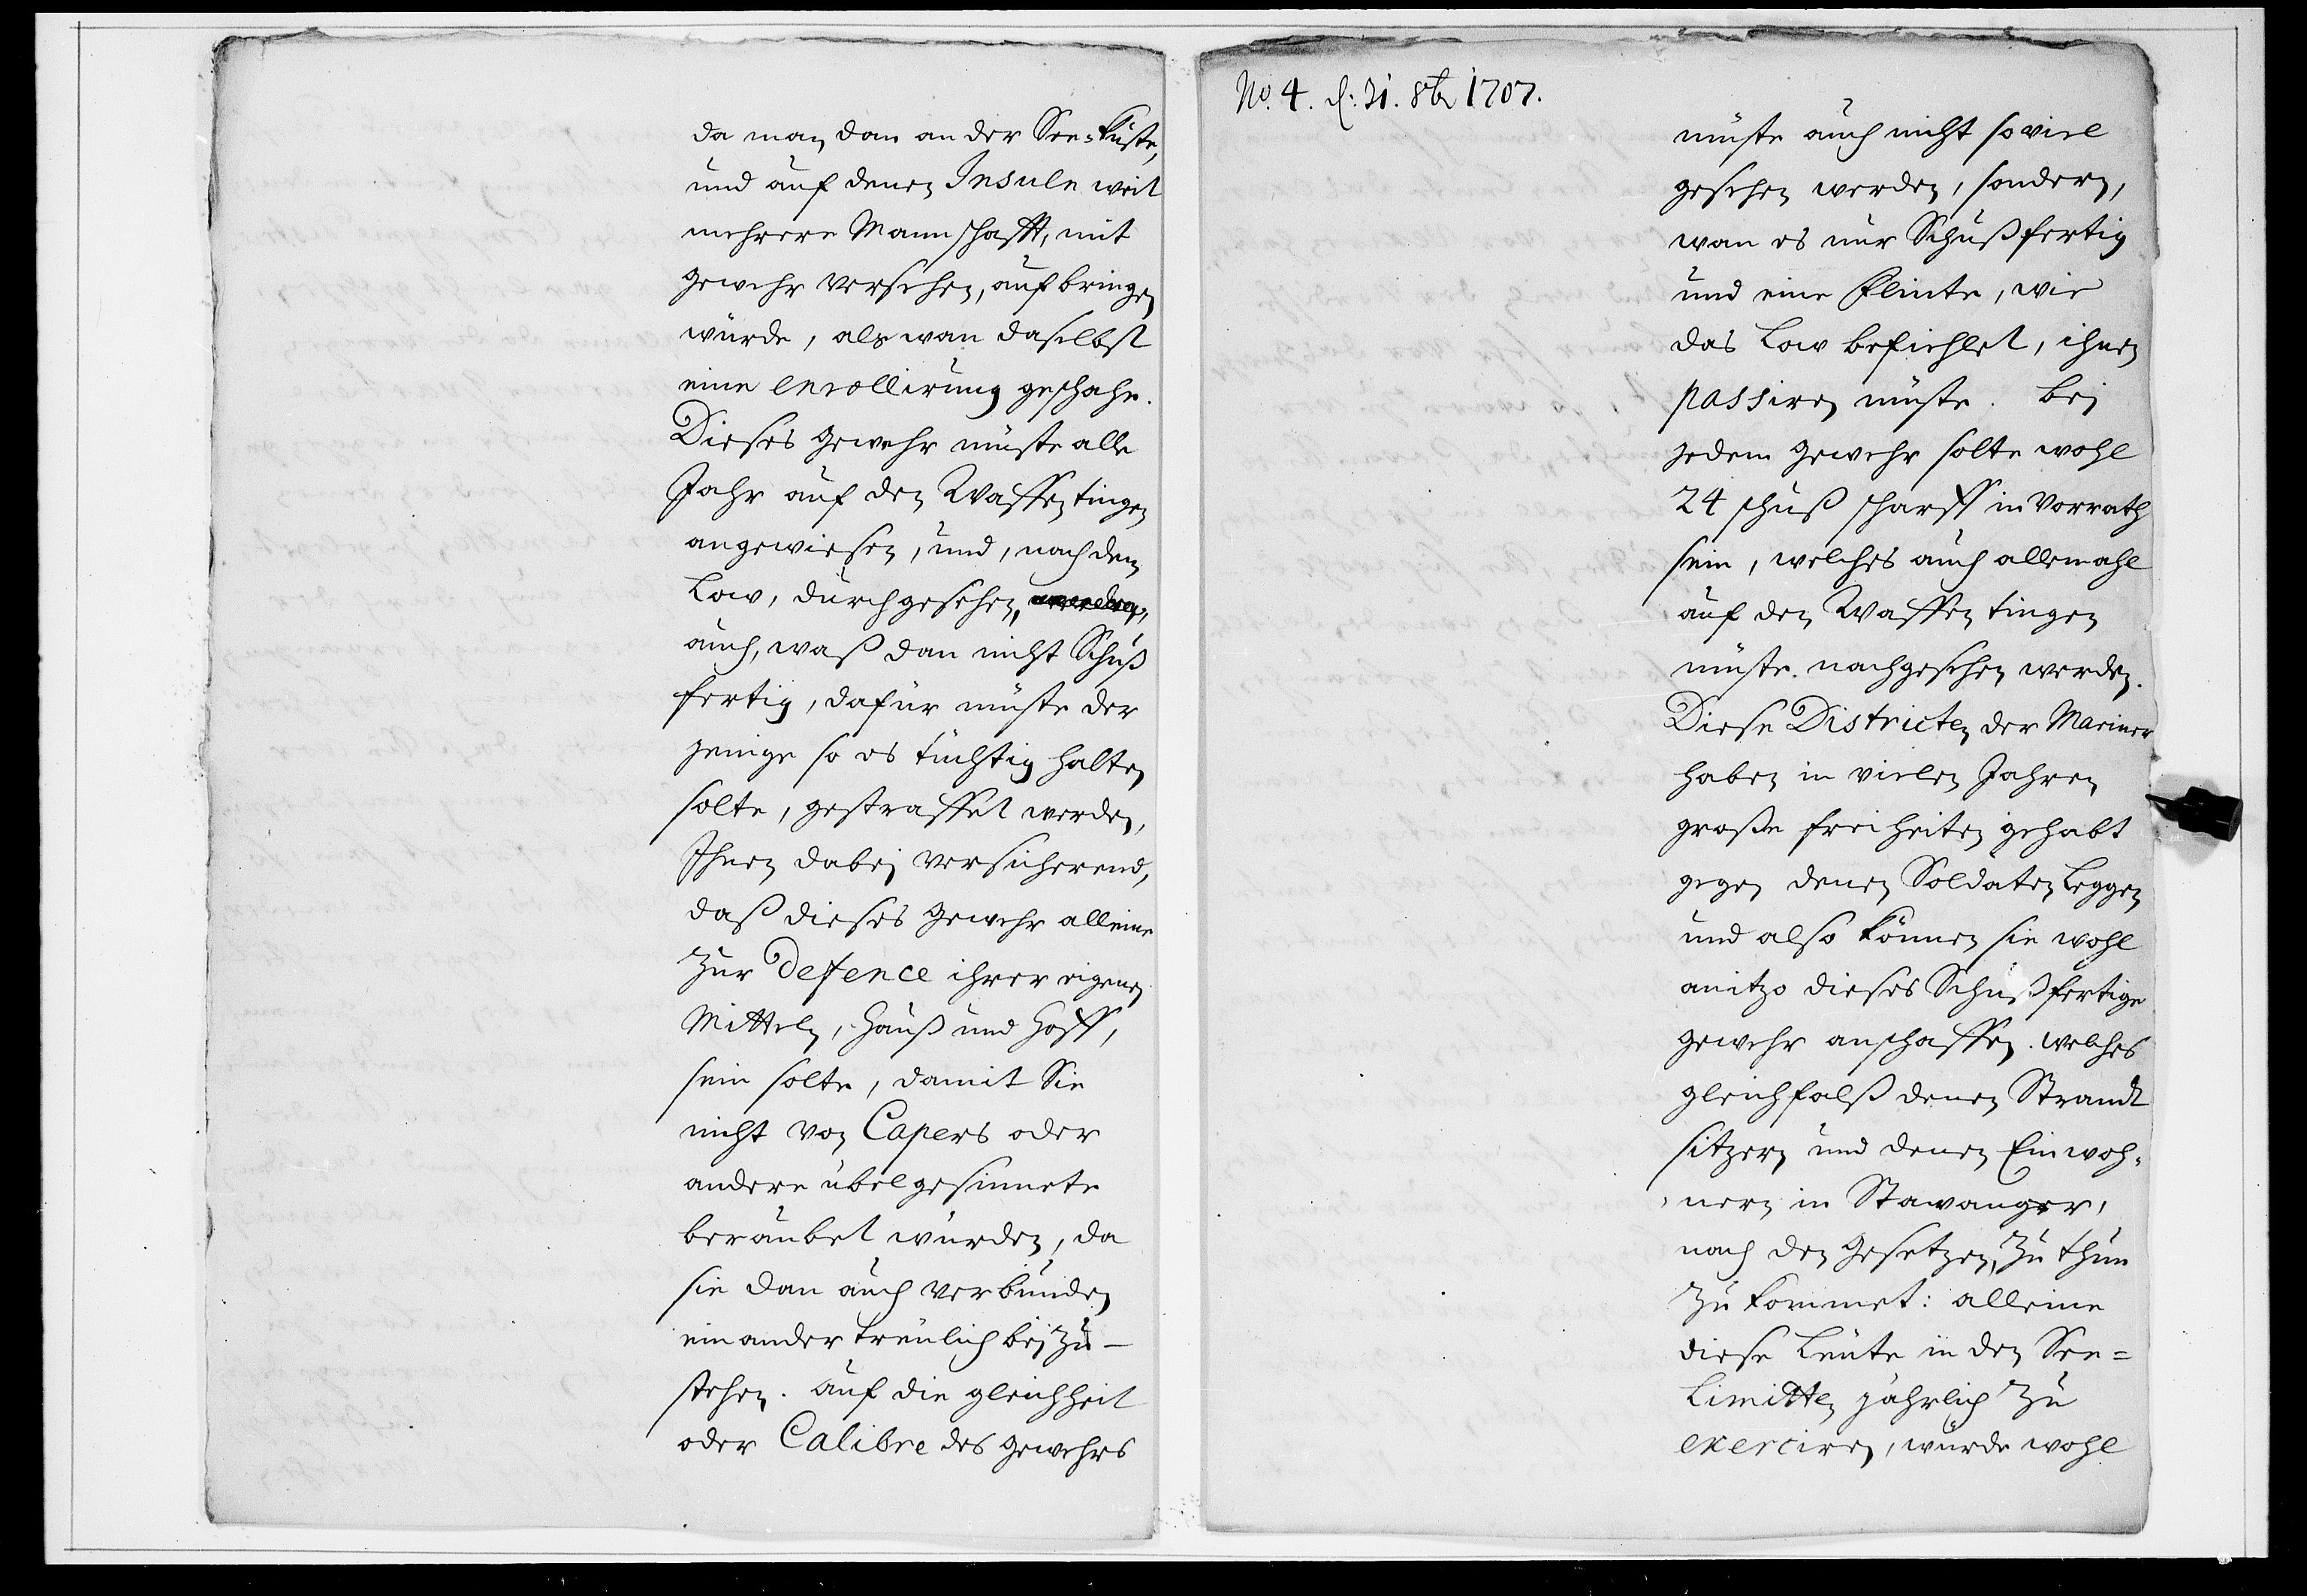 da man dan an der See-küste,
und auf denen Insuln weit
mehrere Mannschafft, mit
gewehr versehen, auf bringen
würde, als wan daselbst
eine enrollirung geschahe.
Dieses gewehr müste alle
Jahr auf den Waffentingen
angewiesen, und, nach dem
Low, durchgesehen, werden,
auch, waß dan nicht Schuß
fertig, dafür müste der
jenige so es tüchtig halten
solte, gestraffet werden,
Ihnen dabej versicherend,
daß dieses gewehr alleine
zur defence ihrer eigenen
Mitteln, Hauß und Hoff,
sein solte, damit Sie
nicht von Capers oder
andere übelgesinnete
beraubet würden, da
sie dan auch verbunden
einander treulich bej zu-
stehen. auf die gleichheit
oder Calibre des gewehrs
No. 4. d: 31. 8br 1707.
müste auch nicht so viel
gesehen werden, sondern,
wan es nur Schußfertig
und eine Flinte, wie
das Low befiehlet, ihnen
passiren müste. Bej
jedem gewehr solte wohl
24 schuß scharff in Vorrath
sein, welches auch allemahl
auf den Waffen tingen
müste nachgesehen werden.
Diese Districten der Mariner
haben in vielen Jahren
große freiheiten gehabt
gegen denen Soldaten Leggen
und also können sie wohl
anitzo dieses Schußfertige
gewehr anschaffen. welches
gleichfalß denen Strandt
sitzern und denen Einwoh-
nern in Stavanger,
nach den Gesetzen, zu thun
zu kommet: alleine
diese Leute in den See=
Limitten jährlich zu
exerciren, würde wohl